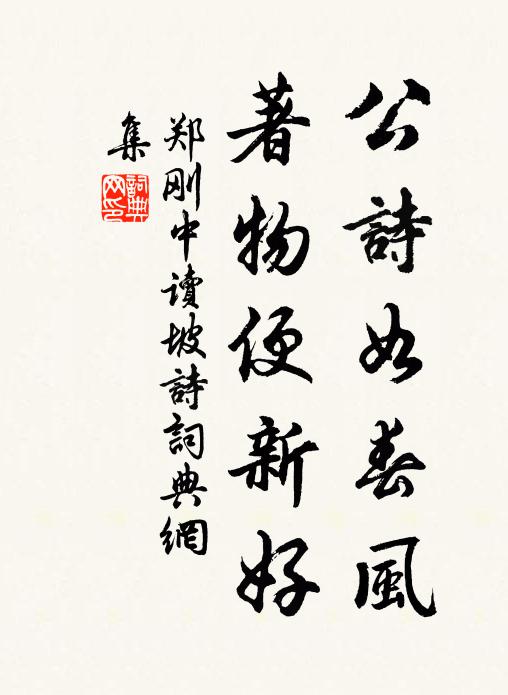 公詩如春風
著物便新好
郑刚中讀坡詩詞典網
集
詞典網印